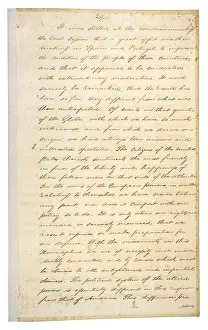 It was stated at the commencement of
the last session that a great effort was then
making in Spain and Portugal to improve
the condition of the people of those countries,
and that it appeared to be conducted
with extraordinary moderation. It need
scarcely be remarked, that the result has
been, so far, very different from what was
then anticipated. Of events in that quarter
of the Globe, with which we have so much
intercourse, and from which we derive our
origin, we have always been anxious and
interested spectators. The citizens of the United
States cherish sentiments the most friendly
in favor of the liberty and happiness of
their fellow men on that side of the Atlantic.
In the wars of the European powers, in matters
relating to themselves, we have never taken
any part, nor does it comport with our
policy so to do. It is only when our rights are
invaded, or seriously menaced, that we
resent injuries, or make preparation for
our defence. With the movements in this
Hemisphere we are of necessity more immed-
iately connected, and by causes which must
be obvious to all enlightened and impartial
observers. The political system of the allied
powers is essentially different in this respect
from that of America. This difference pro